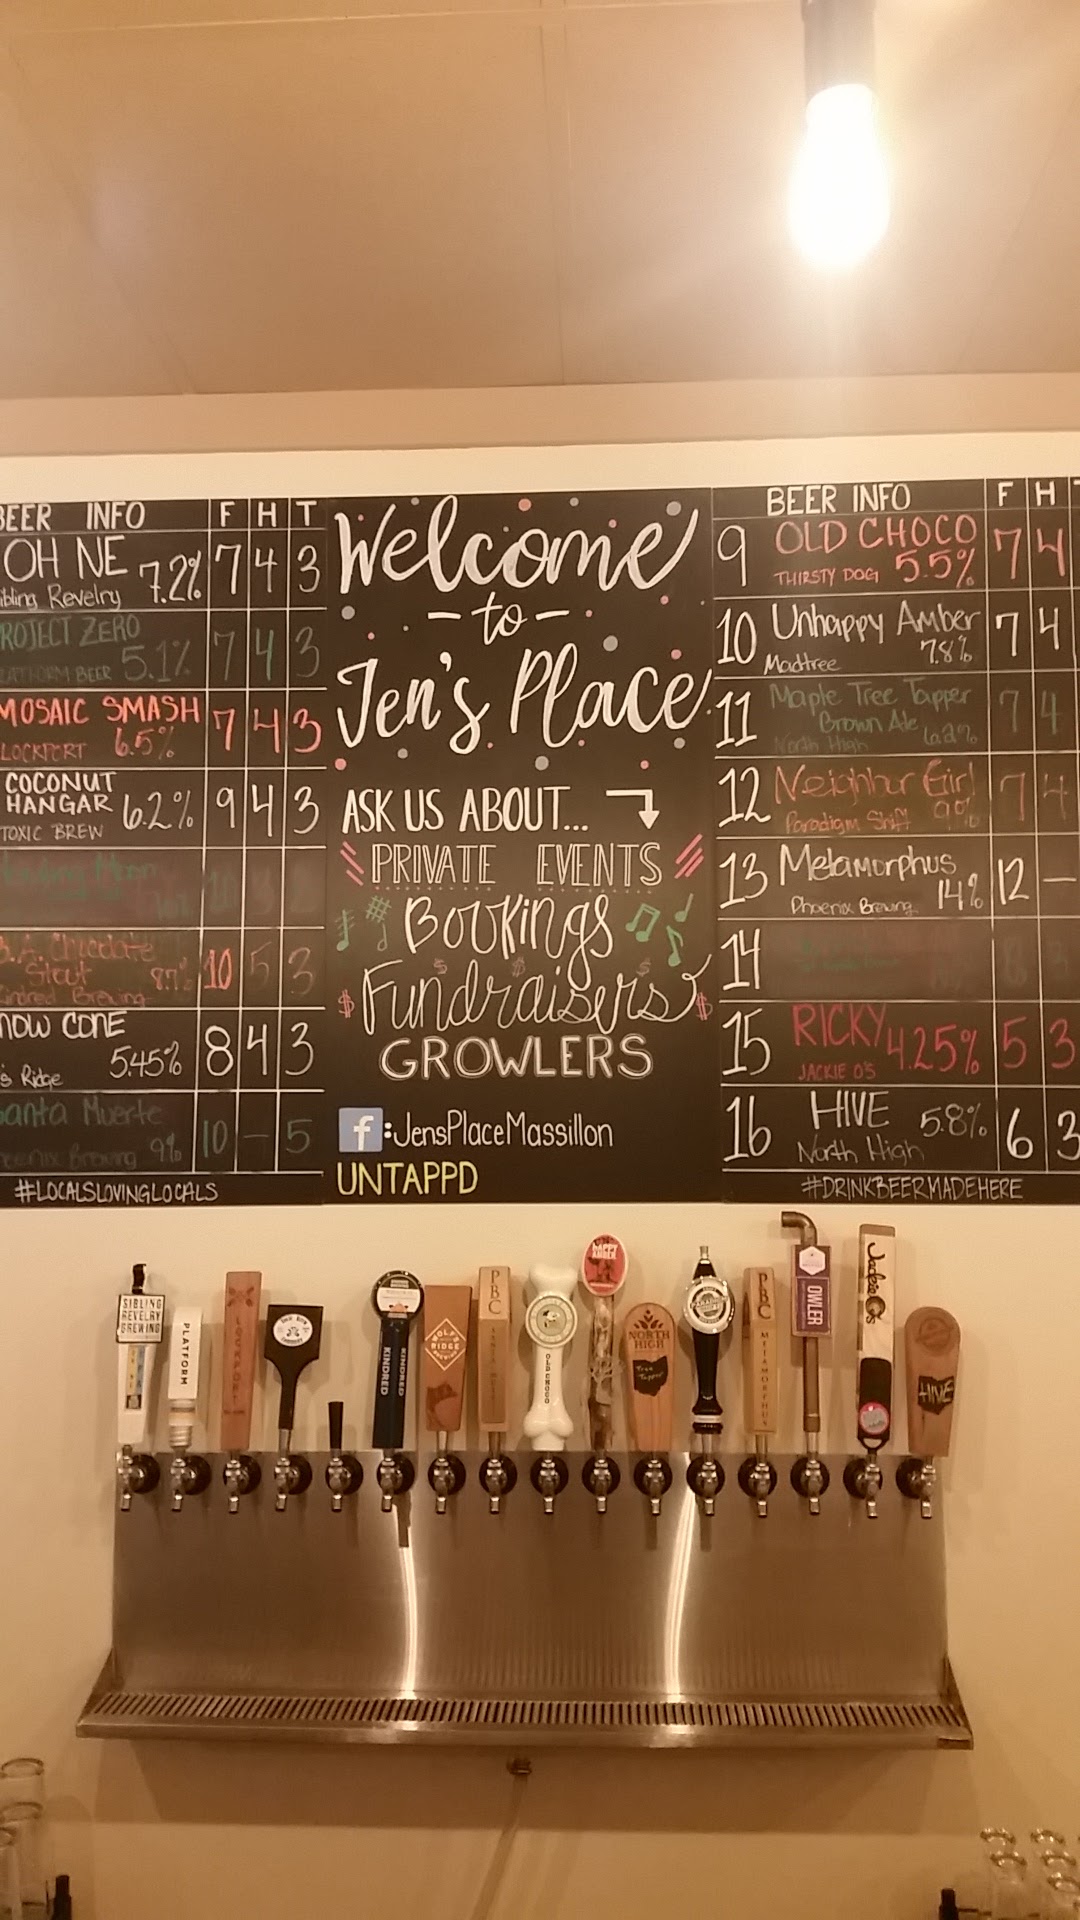 BEER INFO F H T
OH NE 7.2% 7 4 3
ibling Revelry
ROJECT ZERO 5.1% 7 4 3
LATFORM BEER
MOSAIC SMASH 6.5% 7 4 3
LOCKPORT
COCONUT
HANGAR 6.2% 9 4 3
TOXIC BREW
Moon
B.A. Chocolate
Stout 8.7% 10 5 3
Kindred Brewing
NOW CONE 5.45% 8 4 3
's Ridge
Santa Muerte 9% 10 — 5
hoenix Brewing
#LOCALSLOVINGLOCALS
Welcome
- to -
Jen's Place
ASK US ABOUT...
PRIVATE EVENTS
Bookings
Fundraisers
GROWLERS
f:JensPlaceMassillon
UNTAPPD
BEER INFO F H T
9 OLD CHOCO 7 4
THIRSTY DOG 5.5%
10 Unhappy Amber 7 4
Madtree 7.8%
11 Maple Tree Tapper 7 4
Brown Ale
North High 6.2%
12 Neighbor Girl 7 4
Paradigm Shift 9%
13 Metamorphus 12 —
Phoenix Brewing 14%
14 8 3
15 RICKY 4.25% 5 3
JACKIE O'S
16 HIVE 5.8% 6 3
North High
#DRINKBEERMADEHERE
SIBLING
REVELRY
BREWING
PLATFORM
LOCKPORT
KINDRED
KINDRED
WOLF'S
RIDGE
BREWING
PBC
SANTA MUERTE
OLD CHOCO
HAPPY
AMBER
NORTH
HIGH
Tree
Tapper
PARADIGM SHIFT
PBC
METAMORPHUS
OWLER
Jackie O's
HIVE